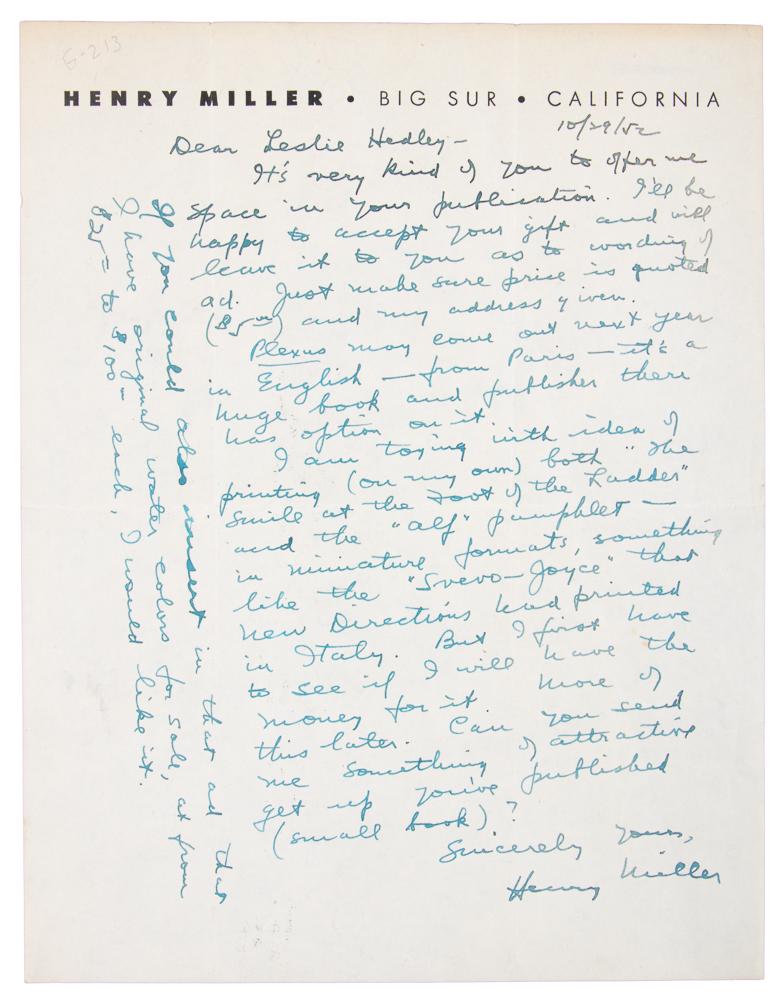 6-213
HENRY MILLER • BIG SUR • CALIFORNIA
10/29/52
Dear Leslie Hedley –
It's very kind of you to offer me
space in your publication. I'll be
happy to accept your gift and will
leave it to you as to wording of
ad. Just make sure price is quoted
($5.00) and my address given.
Plexus may come out next year
in English – from Paris – it's a
huge book and publisher there
has option on it.
I am toying with idea of
printing (on my own) both "The
Smile at the Foot of the Ladder"
and the "Alf" pamphlet –
in miniature formats, something
like the "Svevo-Joyce" that
New Directions had printed
in Italy. But I first have
to see if I will have the
money for it. More of
this later. Can you send
me something of attractive
get up you've published
(small book)?
Sincerely yours,
Henry Miller
If you could also insert in that ad that
I have original water colors for sale, at from
$25= to $100= each, I would like it.